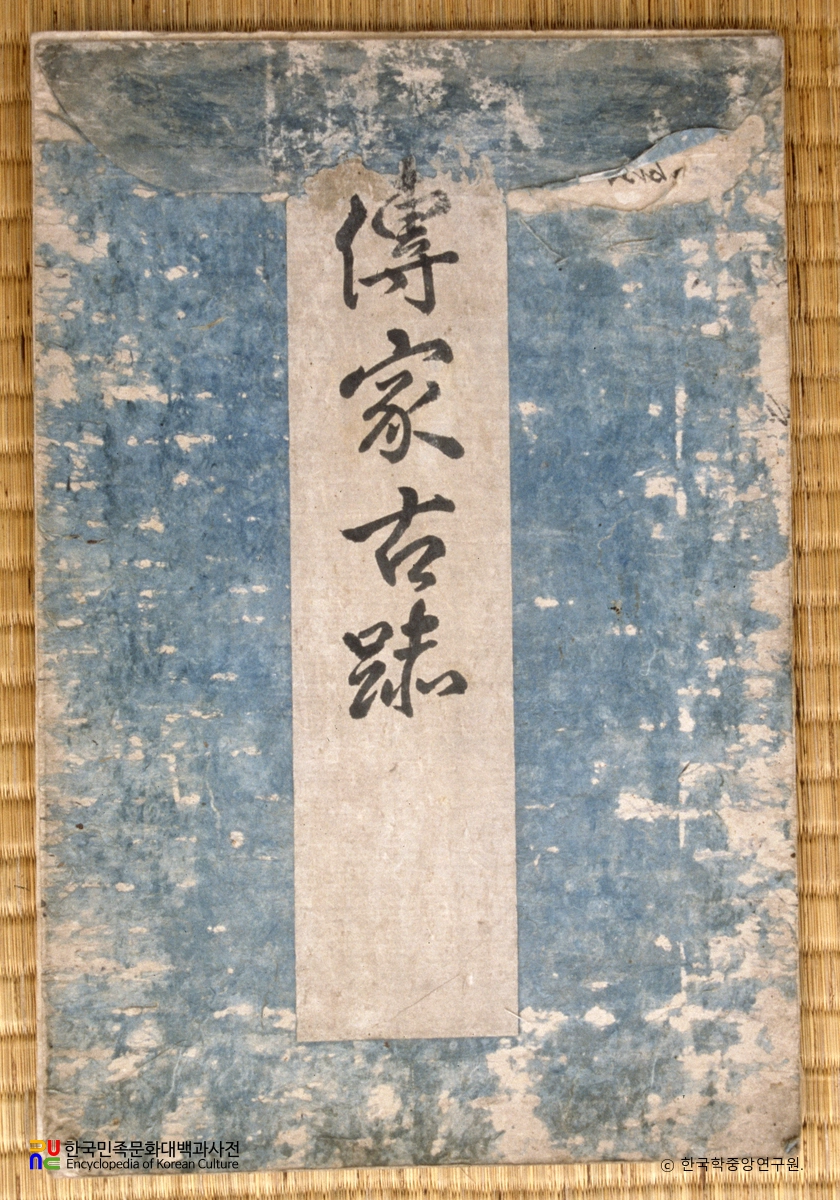 傳家古跡
한국민족문화대백과사전
Encyclopedia of Korean Culture
© 한국학중앙연구원.